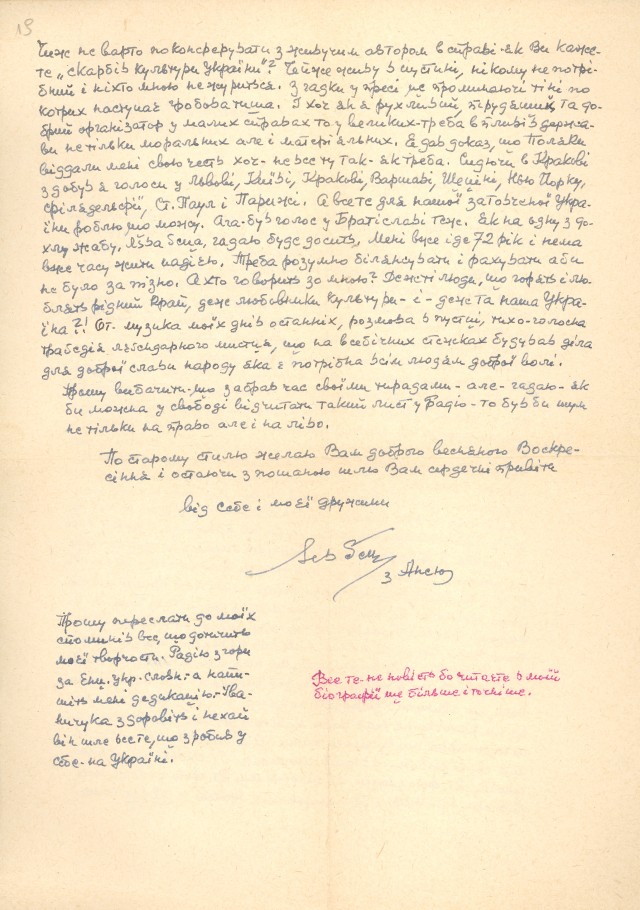 13
Чиж не варто поконсервувати з живучим автором в справі як Ви каже-
те „скарбів культури України"? Чейже живу в пустині, нікому не потрі-
бний і ніхто мною не журиться. Згадки у пресі це проминаючі тіні по
котрих наступає гробова тиша. І хоч я є рухливий, трудящий та до-
брий організатор у малих справах то у великих - треба впливів держа-
ви не тільки моральних але і матеріяльних. Я дав доказ, що Поляки
віддали мені свою честь хоч - не все ту так - як треба. Сидючи в Кракові
здобув я голоси у Львові, Київі, Кракові, Варшаві, Щеціні, Ню Йорку,
Філядельфії, Ст. Паул і Парижі. А все те для нашої затовченої Укра-
їни роблю що можу. Ага - був голос у Братіславі теж. Як на одну з до-
хлу жабу. Лева Ґеца, гадаю буде досить. Мені вже іде 72 рік і нема
вже часу жити надією. Треба розумно білянсувати і рахувати аби
не було запізно. А хто говорить зо мною? Де ж ті люди, що горять і лю-
блять рідний Край, де ж любовники культури - і - де ж та наша Укра-
їна?! От. музика моїх днів останніх, розмова в пустці, тихо-голосна
траґедія леґендарного мистця, що на всебічних стежках будував діла
для доброї слави народу яка є потрібна всім людям доброї волі.
Прошу вибачити - що забрав час своїми тирадами - але - гадаю - як
би можна у свободі відчитати такий лист у Радіо - то був би шум
не тільки на право але і на ліво.
По старому стилю желаю Вам доброго весняного Воскре-
сіння і остаючи з пошаною шлю Вам сердечні привіти
від себе і моєї дружини
Лев Ґец
з Ансею
Прошу переслати до моїх
споминів все, що дотичить
моєї творчости. Радію з гори
за Енц. укр. словн. - а напи-
шіть мені дедикацію. - Іва-
ничука здоровіть і нехай
він шле все те, що зробив у
себе - на Україні.
Все те - не новість бо читаєте в моїй
біографії ще більше і точніше.